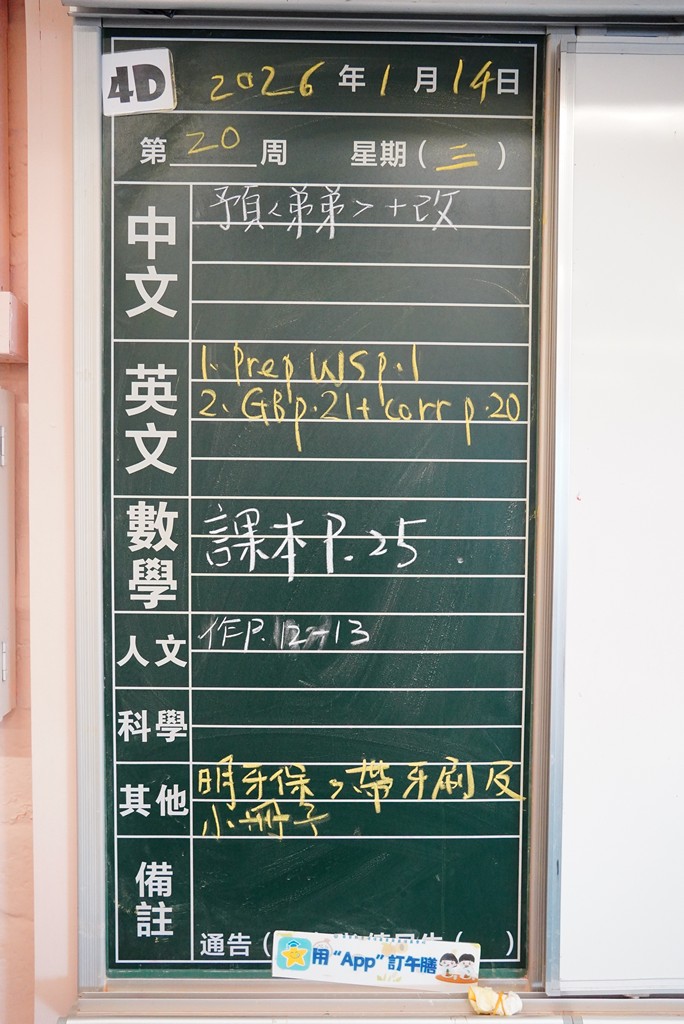 4D
2026年1月14日
第20周 星期(三)
中文
預<弟弟>+改
英文
1. Prep WS p.1
2. GB p.21+ corr p.20
數學
課本P.25
人文
作P.12-13
科學
其他
明牙保,帶牙刷及
小冊子
備註
通告(
)
用“App”訂午膳